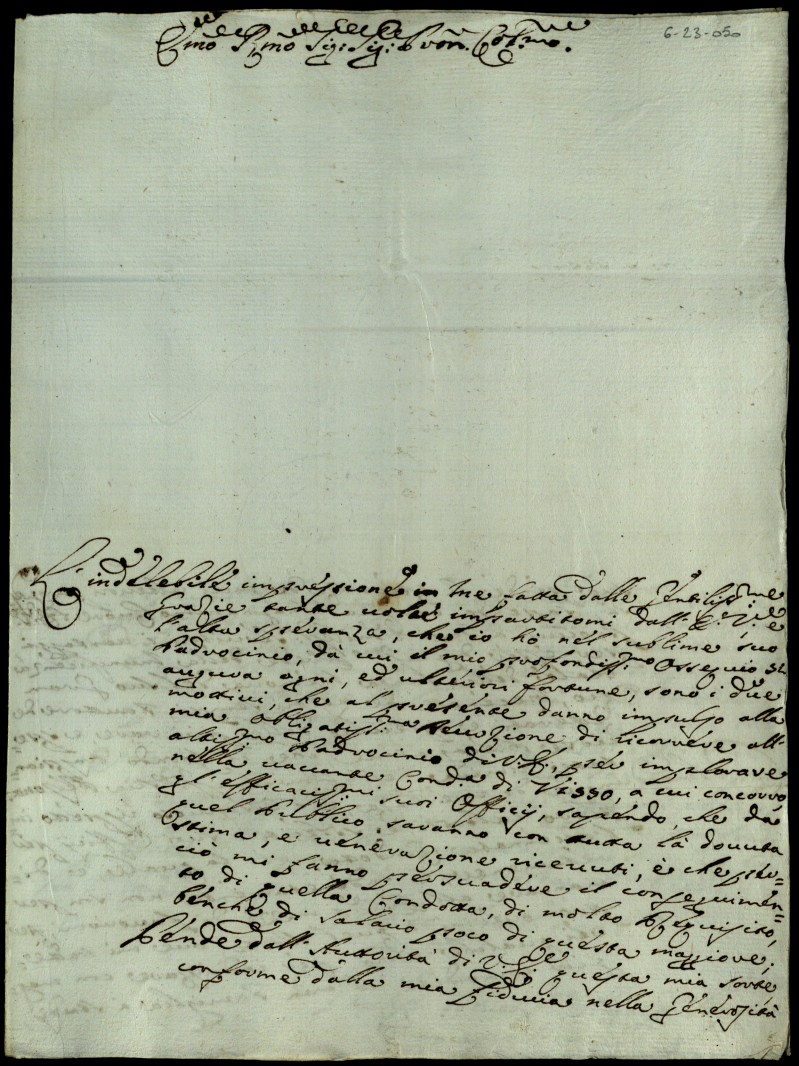 6-23-050
Emo P,mo Sig: Sig: Pron. Col:mo.
L'indelebile impressione in me fatta dalle Gentiliss:me
Grazie tante volte impartitemi dall' E: V: e
l'alta speranza, che io hò nel sublime suo
Padrocinio, dà cui il mio profondiss:mo Ossequio si
augura ogni, ed ulteriori fortune, sono i due
mottivi, che al presente danno impulso alla
mia obligatiss:ma Attenzione di ricorrere all'
altiss:mo Padrocinio di V: E:, per implorare
nella vaccante Cond:a di Visso, a cui concorro
gl'efficaciss:mi suoi Officij, sapendo che dà
quel Publico saranno con tutta la dovuta
Stima, e venerazione ricevuti, è che per-
ciò mi fanno persuadere il conseguimen-
to di quella Condotta, di molto Requisito,
benche di Salario poco di questa maggiore;
Pende dall'Auttorità di V: E: questa mia sorte
conforme dalla mia fiducia nella generosità